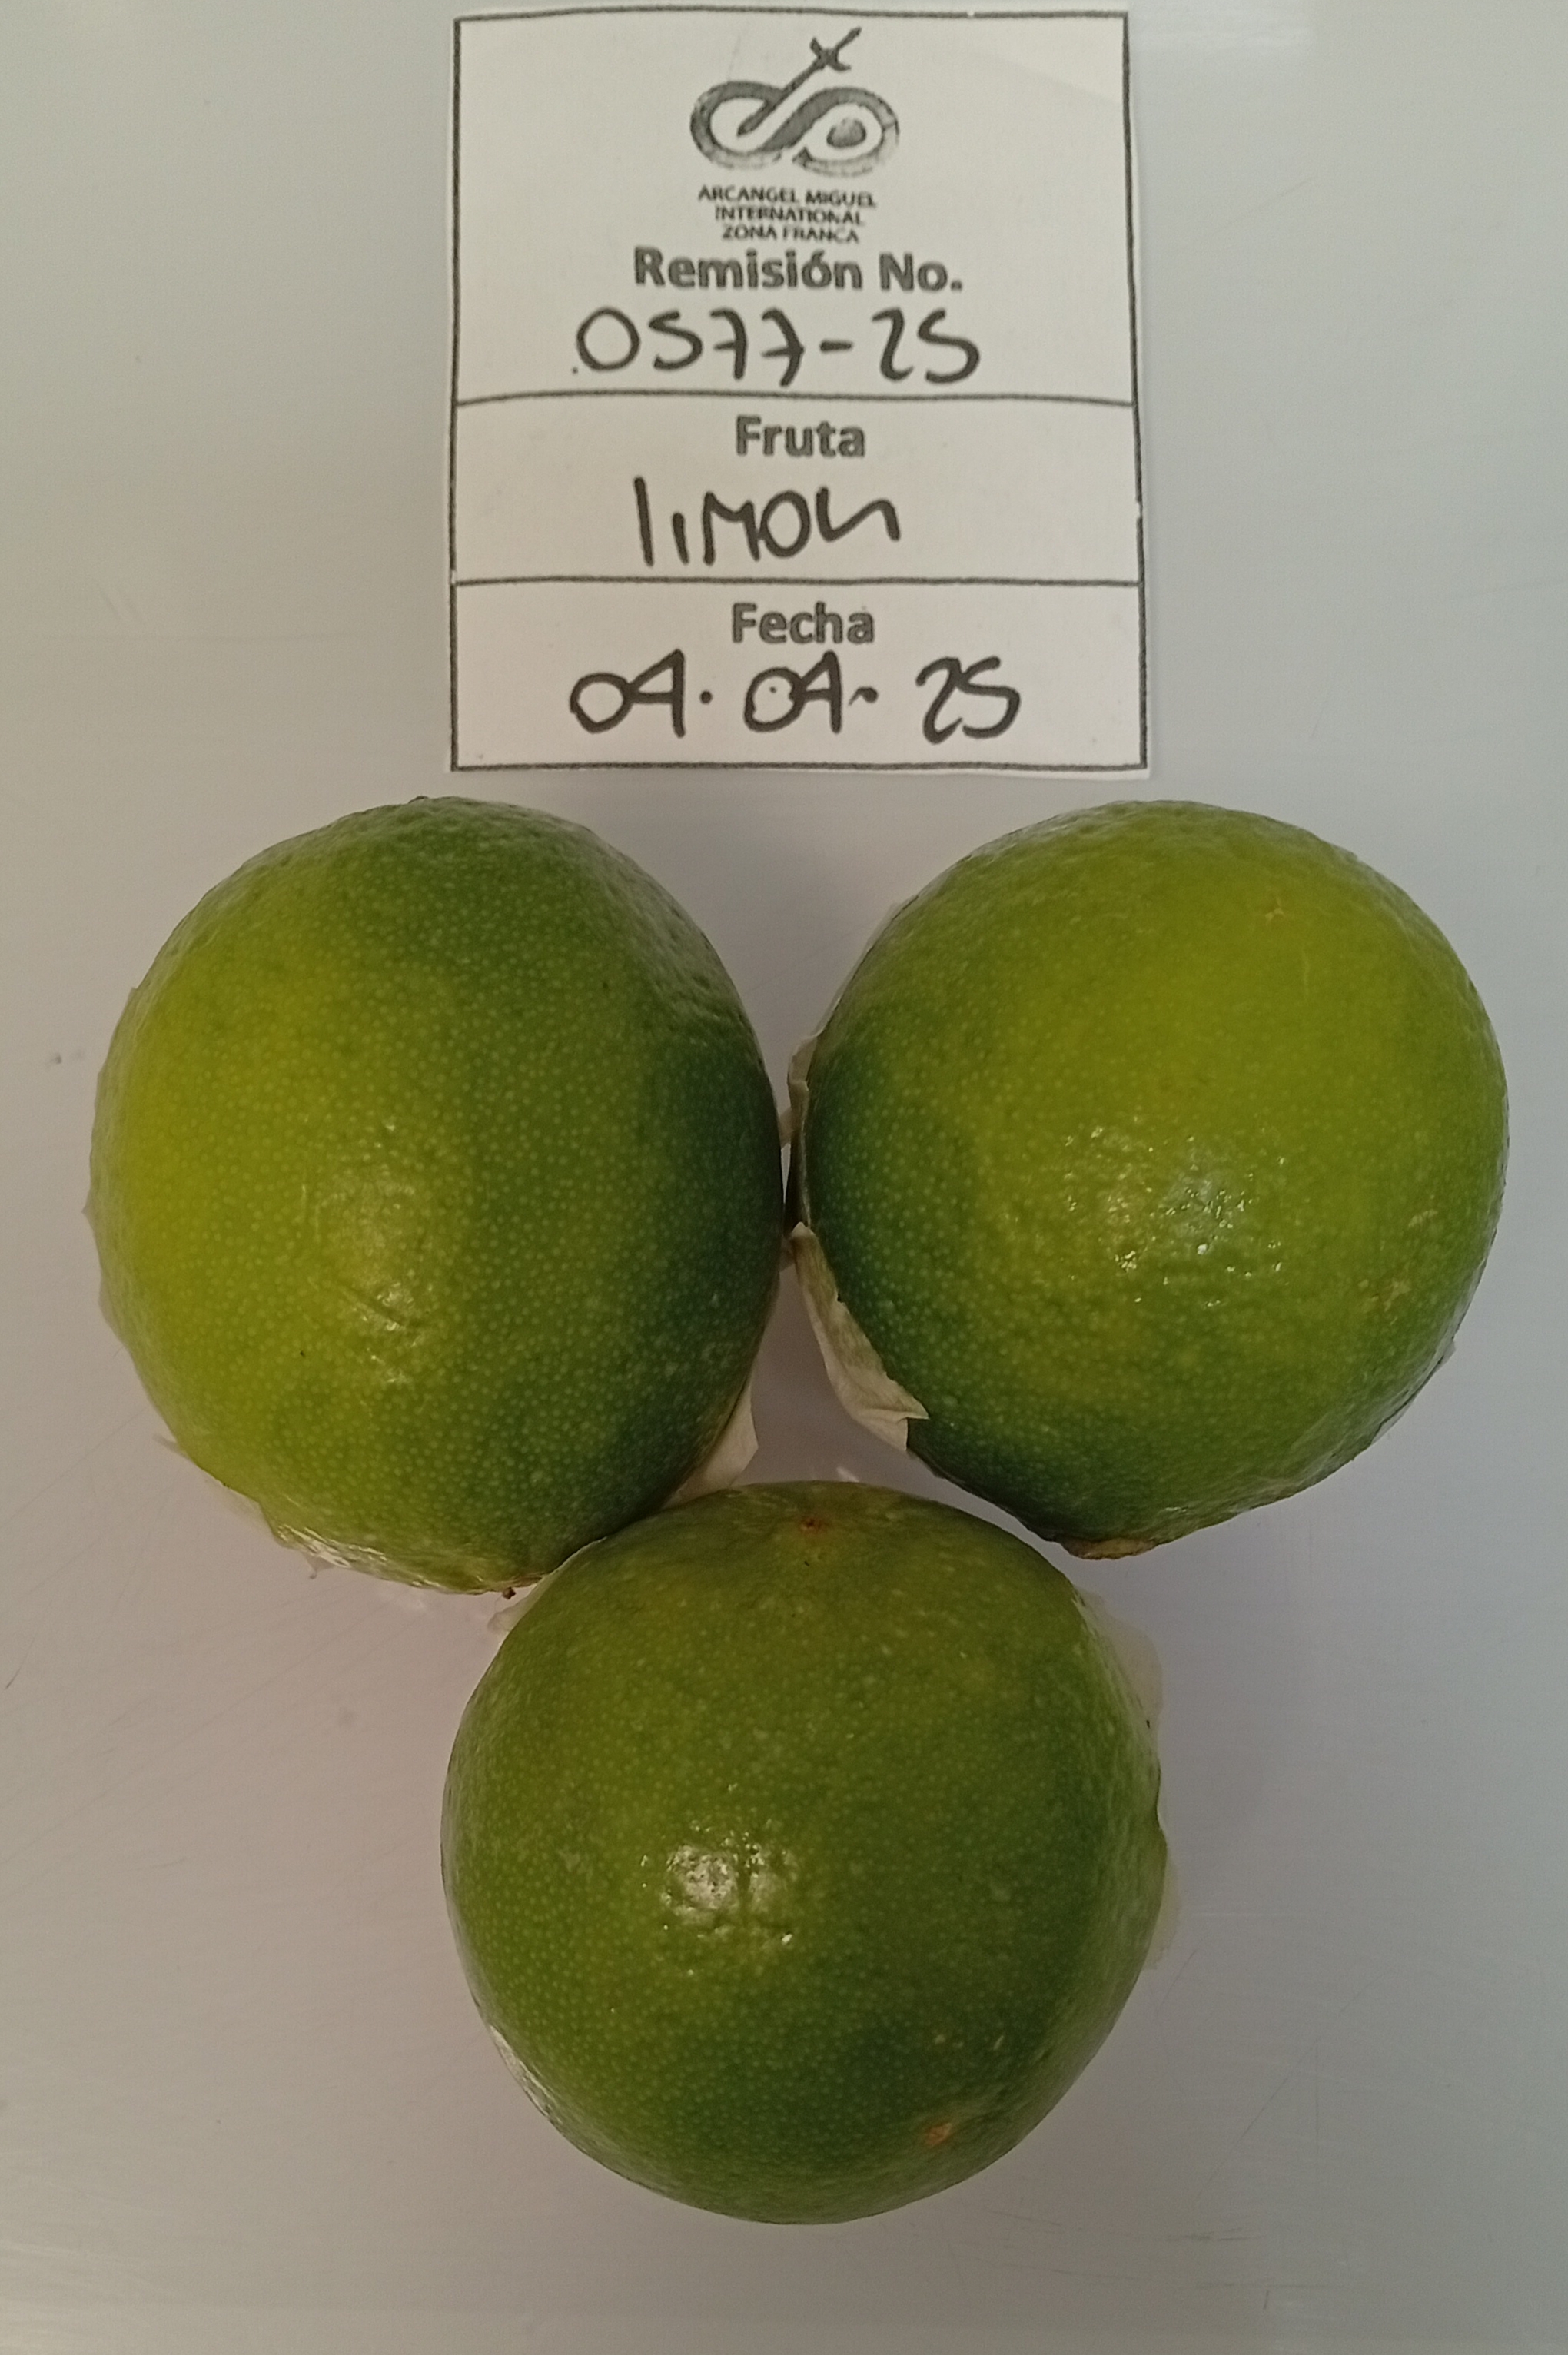 ARCANGEL MIGUEL
INTERNATIONAL
ZONA FRANCA
Remisión No.
0577-25
Fruta
limon
Fecha
04.04.25